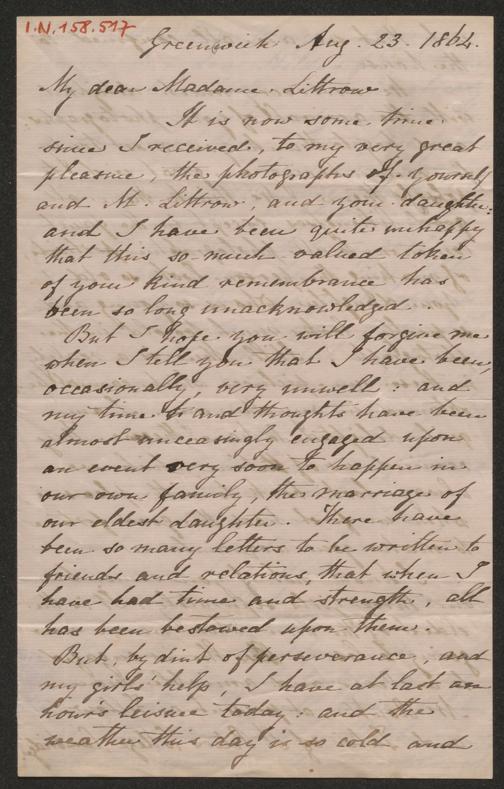 I.N. 158.517
Greenwich Aug. 23. 1864.
My dear Madame. Littrow
It is now some time
since I received, to my very great
pleasure, the photographs of yourself
and M. Littrow, and your daughter:
and I have been quite unhappy
that this so much valued token
of your kind remembrance has
been so long unacknowledged.
But I hope you will forgive me
when I tell you that I have been,
occasionally, very unwell: and
my time and thoughts have been
almost unceasingly engaged upon
an event very soon to happen in
our own family, the marriage of
our eldest daughter. There have
been so many letters to be written to
friends and relations, that when I
have had time and strength, all
has been bestowed upon them.
But, by dint of perseverance, and
my girls' help, I have at last an
hour's leisure today: and the
weather this day is so cold and